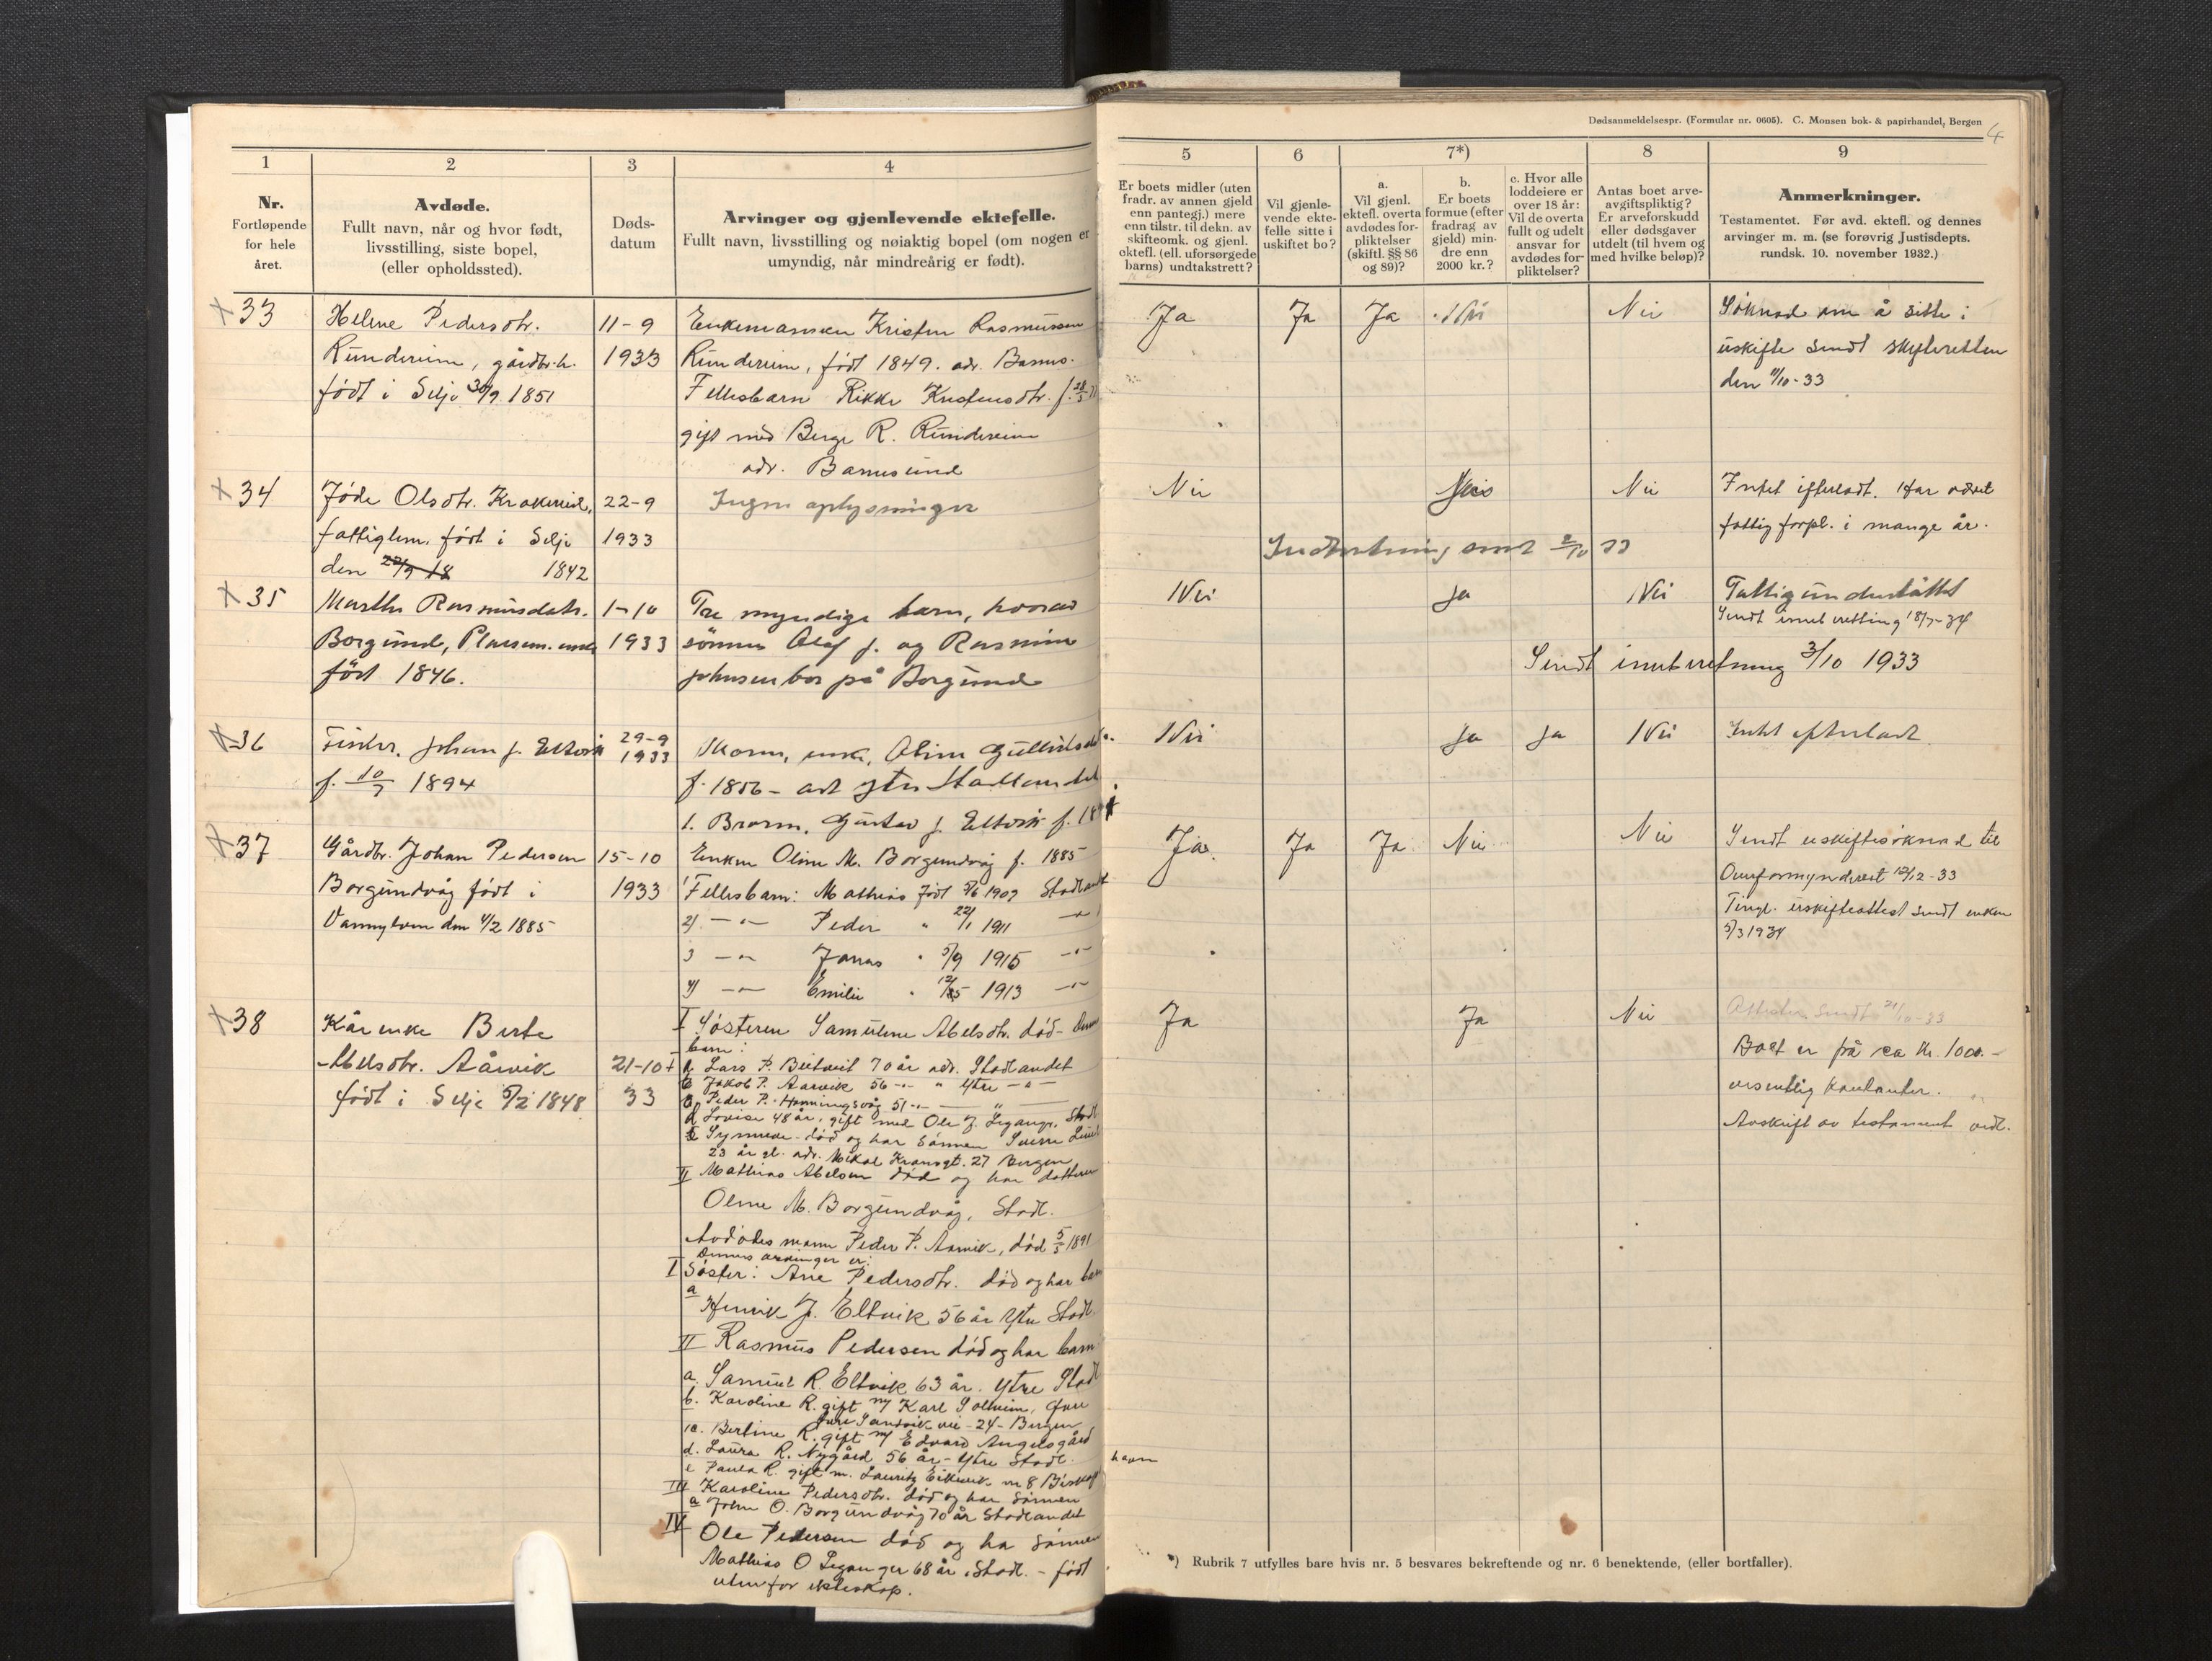 Dødsanmeldelsespr. (Formular nr. 0605). C. Monsen bok- & papirhandel, Bergen
4
1
2
3
4
5
6
7*)
8
9
Nr.
Fortløpende
for hele
året.
Avdøde.
Fullt navn, når og hvor født,
livsstilling, siste bopel,
(eller opholdssted).
Døds-
datum
Arvinger og gjenlevende ektefelle.
Fullt navn, livsstilling og nøiaktig bopel (om nogen er
umyndig, når mindreårig er født).
Er boets midler (uten
fradr. av annen gjeld
enn pantegj.) mere
enn tilstr. til dekn. av
skifteomk. og gjenl.
ektefl. (ell. uforsørgede
barns) undtakstrett?
Vil gjenle-
vende ekte-
felle sitte i
uskiftet bo?
a.
Vil gjenl.
ektefl. overta
avdødes for-
pliktelser
(skiftl. §§ 86
og 89)?
b.
Er boets
formue (efter
fradrag av
gjeld) min-
dre enn
2000 kr.?
c. Hvor alle
loddeiere er
over 18 år:
Vil de overta
fullt og udelt
ansvar for
avdødes for-
pliktelser?
Antas boet arve-
avgiftspliktig?
Er arveforskudd
eller dødsgaver
utdelt (til hvem og
med hvilke beløp)?
Anmerkninger.
Testamentet. Før avd. ektefl. og dennes
arvinger m. m. (se forøvrig Justisdepts.
rundsk. 10. november 1932.)
33
Helene Pedersdtr.
Rundereim, gårdbr.h.
født i Selje 30/9 1851
11-9
1933
Enkemannen Kristen Rasmussen
Rundereim, født 1849. adr. Barms.
Fellesbarn Rikke Kristensdtr. f. 28/5
gift med Berge R. Rundereim
adr. Barmsund
Ja
Ja
Ja
Nei
Nei
Søknad om å sitte i
uskifte sendt skifteretten
den 11/10-33
34
Jøde Olsdtr. Krakereid,
fattiglem. født i Selje
den 22/9 18 1842
22-9
1933
Ingen oplysninger
Nei
Nei
Intet efterladt. Har været
fattigforpl. i mange år.
Indberetning sendt 2/10 33
35
Marthe Rasmusdatr.
Borgund, Plassm. enke
født 1846.
1-10
1933
Tre myndige barn, hvorav
sønnen Olaf J. og Rasmine
Johnsen bor på Borgund
Nei
Ja
Nei
Fattigunderstøttet
Sendt innberetting 18/7-34
Sendt innberetning 3/10 1933
36
Fisker. Johan J. Eltvik
f. 10/7 1894
29-9
1933
Moren, enke, Oline Gullik
f. 1856 - adr ytre Stadlandet
1. Broren, Gustav J. Eltvik f. 18
Nei
Ja
Ja
Nei
Intet efterladt
37
Gårdbr. Johan Pedersen
Borgundvåg født i
Vannylven den 4/2 1885
15-10
1933
Enken Oline M. Borgundvåg f. 1885
1 Fellesbarn: Mathias født 3/6 1909 Stadlandet
2) -"- Peder " 22/1 1911 -"-
3 -"- Jonas " 5/9 1915 -"-
4) -"- Emilie " 1913 -"-
Ja.
Ja
Ja
Nei
Nei
Sendt uskiftesøknad til
Overformynderiet 12/12-33
Tingl. uskifteattest sendt enken
5/3 1934
38
Kårenke Berte
Abelsdtr. Aårvik
født i Selje 5/2 1848
21-10
33
I Søsteren Samuline Abelsdtr. død - Dennes
barn:
a Lars P. Beitveit 70 år adr. Stadlandet
b Jakob P. Aarvik 56 -"- " ytre -"-
c Peder P. Honningsvåg 51 -"-
d Lovise 48 år. gift med Ole J. Leganger. Stadl
e Synneve - død og har sønnen Sverre
23 år gl. adr. Mikal Kransgt. 27 Bergen
II Mathias Abelsen død og har datteren
Oline M. Borgundvåg, Stadl.
Avdødes mann Peder P. Aarvik, død 5/5 1891
Dennes arvinger er:
I Søster: Ane Pedersdtr. død og har barn
a
Henrik J. Eltvik 56 år Ytre Stadl.
II Rasmus Pedersen død og har barn
a. Samuel R. Eltvik 63 år. ytre Stadl
b. Karoline R. gift m/ Karl Solheim,
Sandvik vei - 24 - Bergen
c. Bertine R. gift m/ Edvard Angelsgård
d. Laura R. Nygård 56 år - Ytre Stadl.
e Paula R. gift m. Lauritz Eikevik m 8 Biskops
havn
III Karoline Pedersdtr. død og har sønnen
a John O. Borgundvåg 70 år Stadlandet
IV Ole Pedersen død og ha sønnen
Mathias O Leganger 68 år. Stadl. - født
utenfor ekteskap.
Ja
Ja
Nei
Attester sendt 21/10-33
Boet er på ca kr. 1000.-
vesentlig kontanter.
Avskrift av testament vedl.
*) Rubrik 7 utfylles bare hvis nr. 5 besvares bekreftende og nr. 6 benektende, (eller bortfaller).